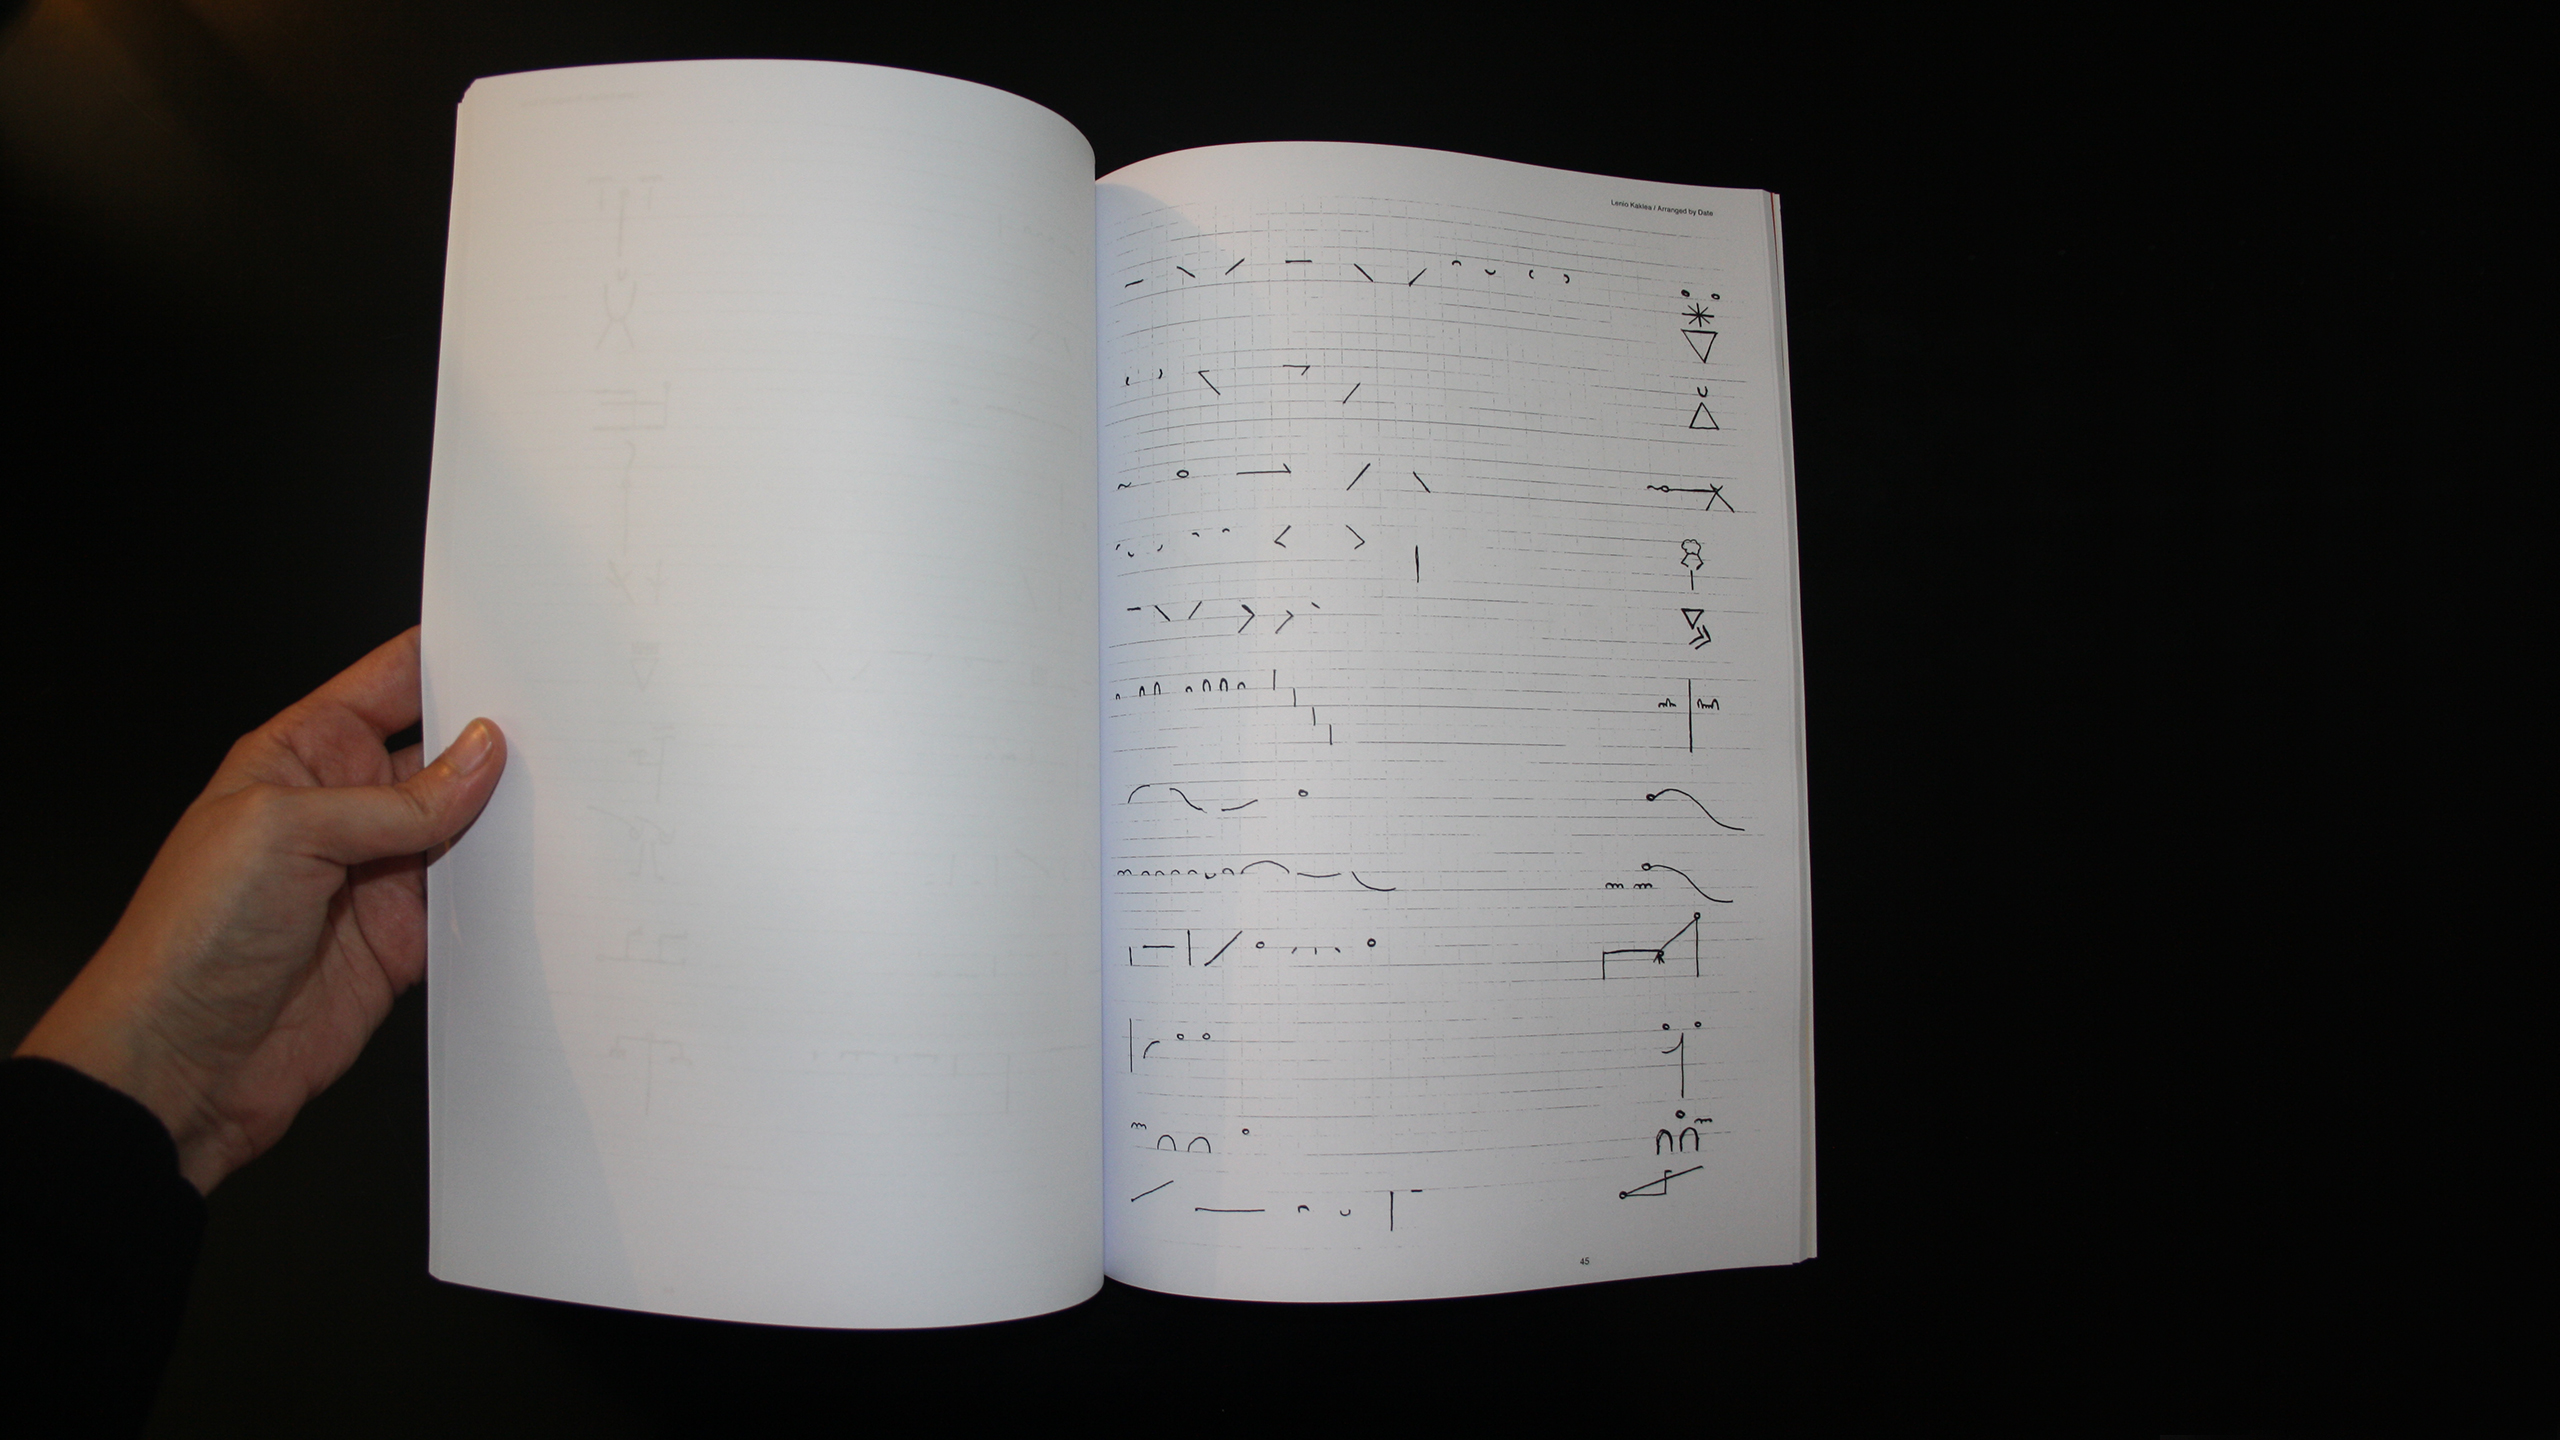 Lenio Kaklea / Arranged by Date
45